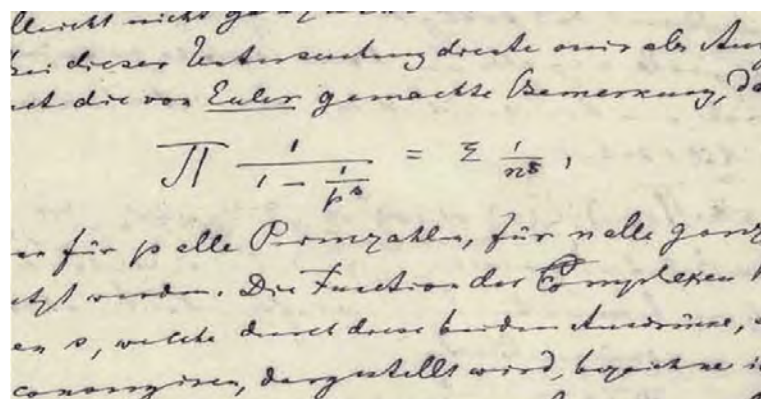 lleicht nicht ganz
Bei dieser Untersuchung diente mir als
die von Euler gemachte Bemerkung, da
∏ 1/(1 − 1/p^s) = Σ 1/n^s,
für p alle Primzahlen, für n alle ganz
etzt werden. Die Function der Complexen
en s, welche durch diese beiden Ausdrücke,
convergiren, dargestellt wird, bezeichne i